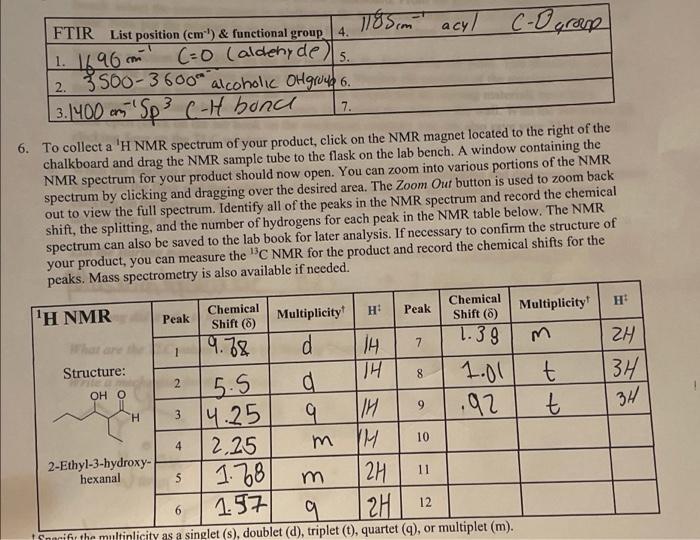 FTIR List position (cm⁻¹) & functional group 4. 1185 cm⁻¹ acyl C-O group
1. 1696 cm⁻¹ C=O (aldehyde) 5.
2. 3500-3600 cm⁻¹ alcoholic OH group 6.
3. 1400 cm⁻¹ Sp³ C-H bond 7.
6. To collect a ¹H NMR spectrum of your product, click on the NMR magnet located to the right of the
chalkboard and drag the NMR sample tube to the flask on the lab bench. A window containing the
NMR spectrum for your product should now open. You can zoom into various portions of the NMR
spectrum by clicking and dragging over the desired area. The Zoom Out button is used to zoom back
out to view the full spectrum. Identify all of the peaks in the NMR spectrum and record the chemical
shift, the splitting, and the number of hydrogens for each peak in the NMR table below. The NMR
spectrum can also be saved to the lab book for later analysis. If necessary to confirm the structure of
your product, you can measure the ¹³C NMR for the product and record the chemical shifts for the
peaks. Mass spectrometry is also available if needed.
¹H NMR Peak Chemical Shift (δ) Multiplicity† H‡ Peak Chemical Shift (δ) Multiplicity† H‡
1 d 1H 7 1.38 m 2H
Structure:
2 5.5 d 1H 8 1.01 t 3H
OH O
H
3 4.25 q 1H 9 .92 t 3H
4 2.25 m 1H 10
2-Ethyl-3-hydroxy-
hexanal
5 m 2H 11
6 1.57 q 2H 12
† Specify the multiplicity as a singlet (s), doublet (d), triplet (t), quartet (q), or multiplet (m).